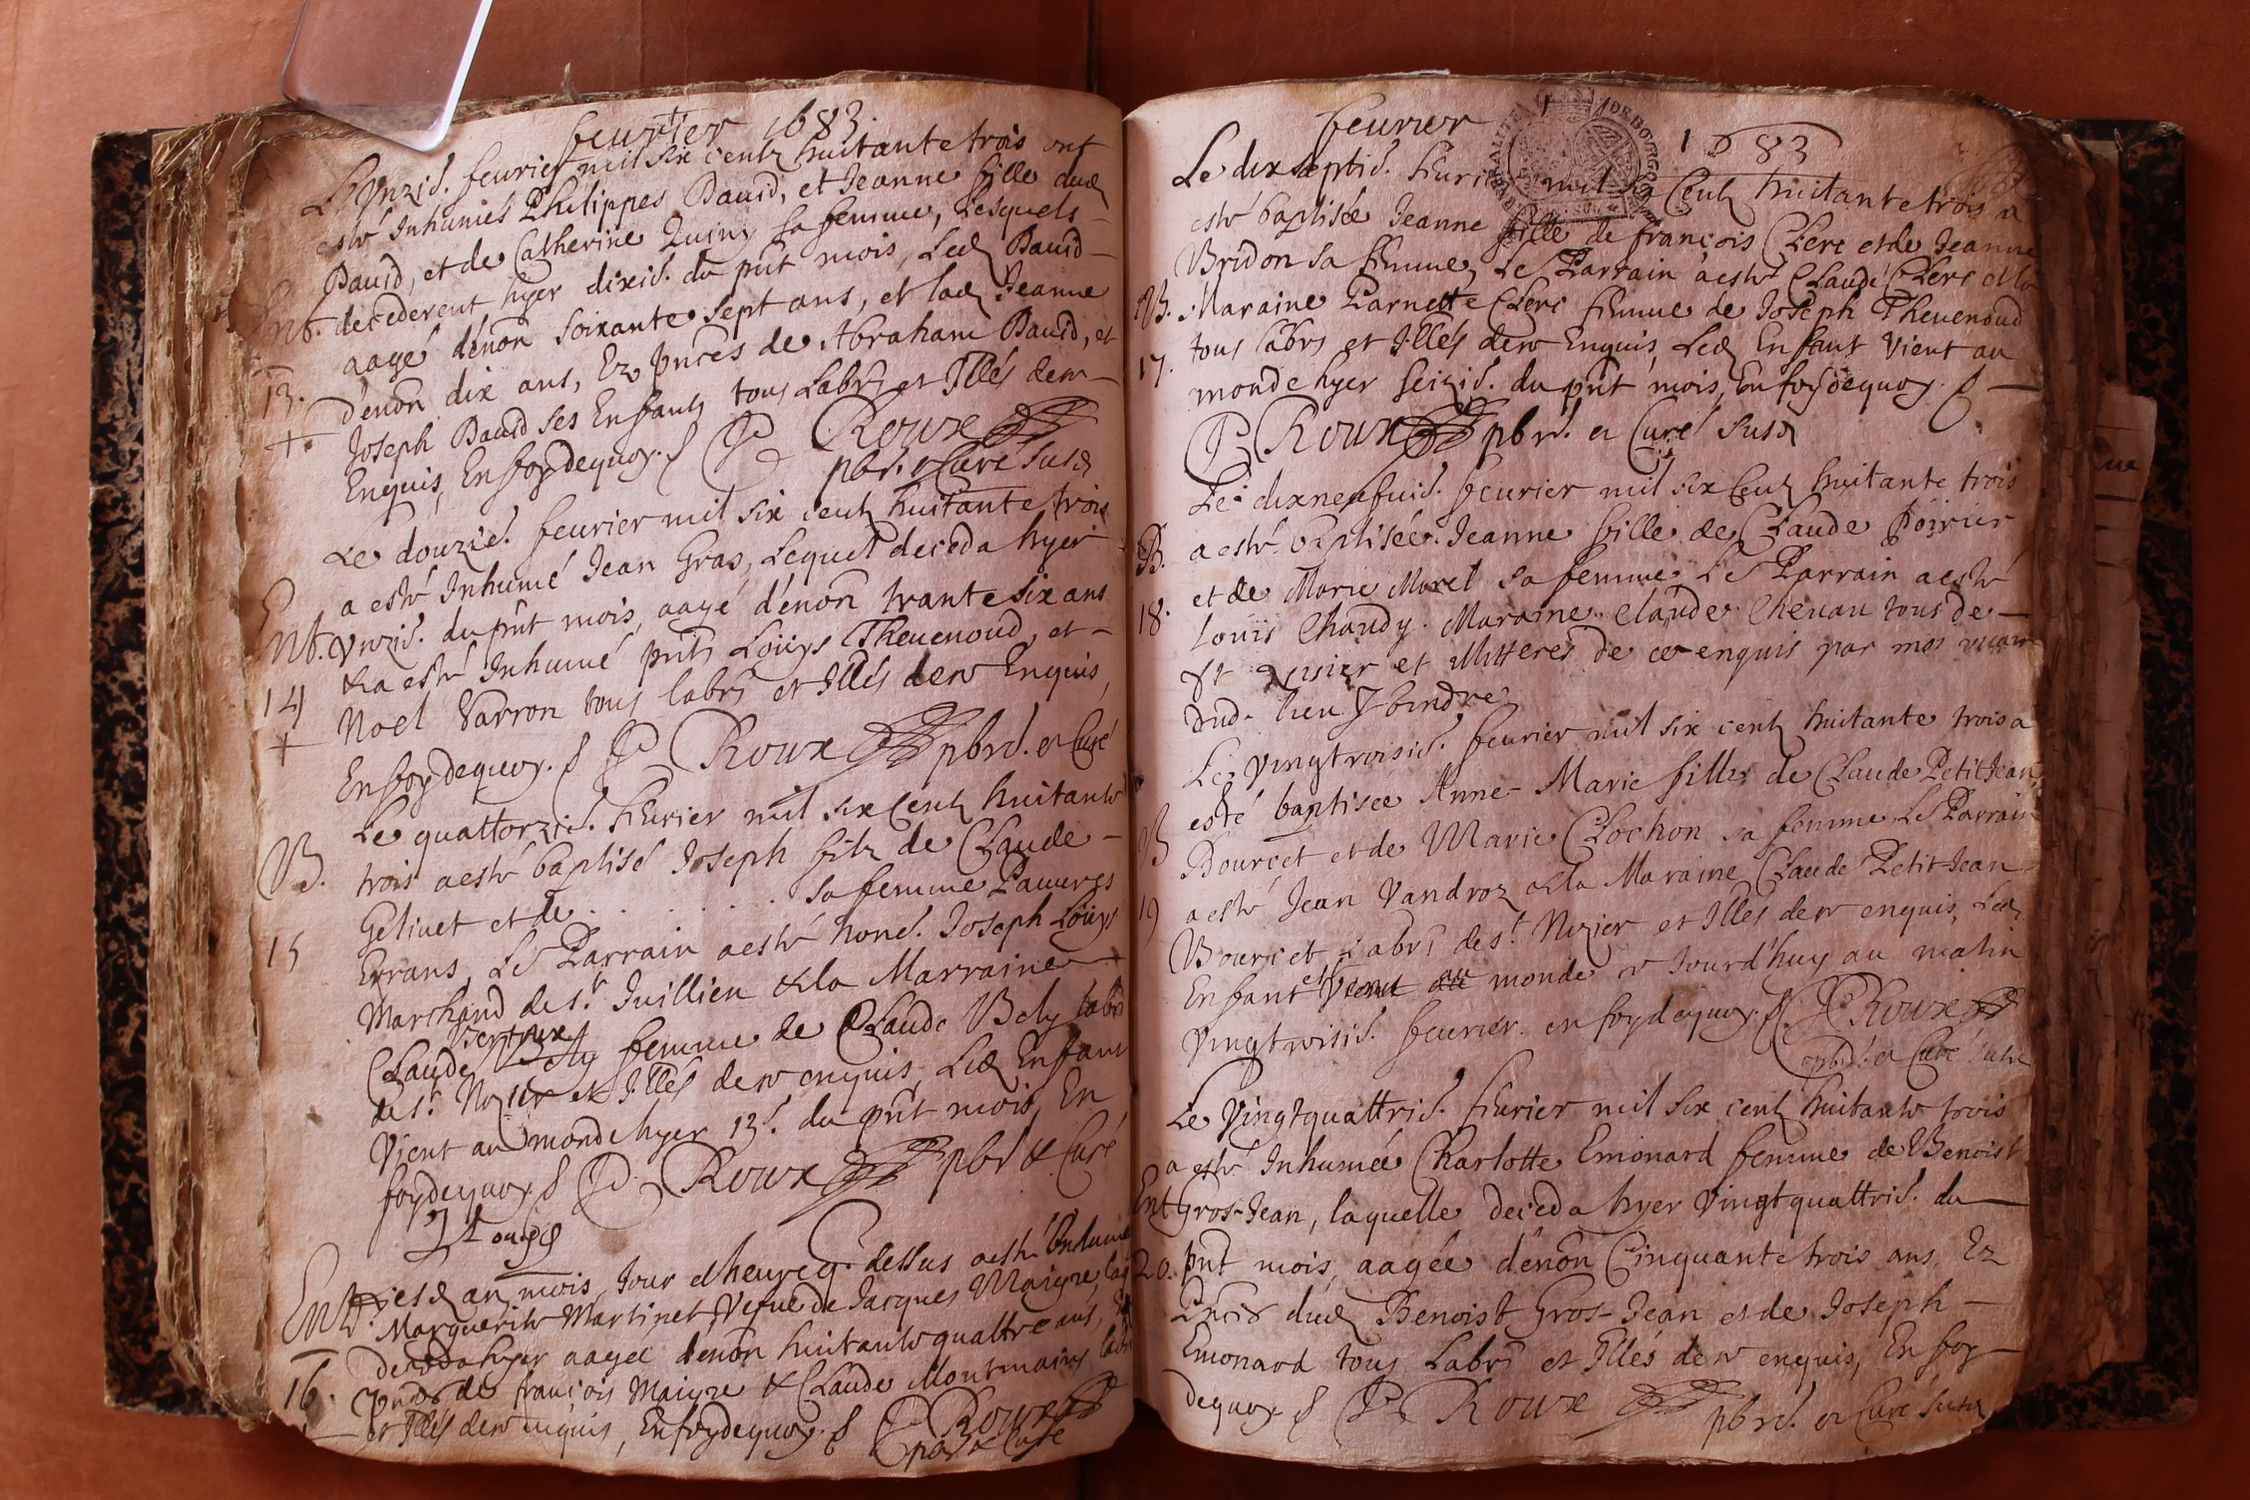 feurier 1683.
L'Vnzie. feurier mil six centz huitante trois ont
esté Inhumés Philippes Dauid, et Jeanne fille dud
Dauid, et de Catherine sa femme, Lesquels
Ent. decederent hyer dixie. du pnt mois, Led Dauid
aagé denon soixante sept ans, et lad Jeanne
13. denon dix ans, Ez pnces de Abraham Dauid, et
Joseph Dauid ses Enfantz tous Labrs et Illés dem
Enquis, En foy de quoy. P Roux
pbr. & Curé susd
Le douzie. feurier mil six centz huitante trois
a esté Inhumé Jean Gras, Lequel deceda hyer
Ent. Vnzie. du pnt mois, aagé denon trante six ans
& a esté Inhumé pnts Loüys Theuenoud, et
14 Noel Varron tous labrs et Illés dem Enquis,
En foy de quoy. P Roux pbre. et Curé
Le quattorzie. feurier mil six centz huitante
B. trois a esté baptisé Joseph filz de Claude
Geliuet et de . . . . . . sa femme Pauures
15 Errans, Le Parrain a esté hone. Joseph Loüys
Marchand de st. Juillien & la Marraine
Claude Bely femme de Claude Bely labr
de st. Nizier et Illés dem enquis, Led Enfant
Vient au monde hyer 13e. du pnt mois, En
foy de quoy P. Roux pbr & Curé
Ent. les d an, mois, Jour et heure cy dessus a esté Inhumé
Marguerite Martinet Vefue de Jacques Maigre
deceda hyer aagée denon huitante quattre ans,
16. pnces de françois Maigre & Claude Montmain labr
et Illés dem enquis, En foy de quoy. P Roux
pbr & Curé
feurier 1683
Le dix septie. feurier mil six Centz huitante trois a
esté baptisée Jeanne fille de françois Clerc et de Jeanne
Vridon sa femme, Le Parrain a esté Claude Clerc et la
B. Maraine Parnette Clerc femme de Joseph Theuenoud
17. tous labrs et Illés dem Enquis, Led Enfant Vient au
monde hyer seizie. du pnt mois, En foy de quoy.
P Roux pbre. et Curé susd
Le dixneufuie. feurier mil six Centz huitante trois
B. a esté baptisée Jeanne fille de Claude Poirier
et de Marie Morel sa femme, Le Parrain a esté
18. Louis Chandy. Maraine Claude Cheuau tous de
st Nisier et Illitteres de ce enquis par moy vicaire
dud. lieu
Le Vingtroisie. feurier mil six centz huitante trois a
esté baptisée Anne-Marie fille de Claude Petit Jean
B Bourcet et de Marie Clochon sa femme Le Parrain
19 a esté Jean Vandroz & la Maraine Claude Petit Jean
Bourcet Labrs de st. Nizier et Illés dem enquis, Led
Enfant est Venut au monde Jourd'huy au matin
Vingtroisie. feurier en foy de quoy. P Roux
pbre. et Curé susd
Le Vingtquattrie. feurier mil six centz huitante trois
a esté Inhumée Charlotte Emonard femme de Benoist
Ent. Gros-Jean, laquelle deceda hyer Vingtquattrie. du
20. pnt mois, aagée denon Cinquante trois ans, Ez
pnces dud Benoist Gros-Jean et de Joseph
Emonard tous Labrs et Illés dem enquis, En foy
de quoy P Roux pbre. et Curé susd